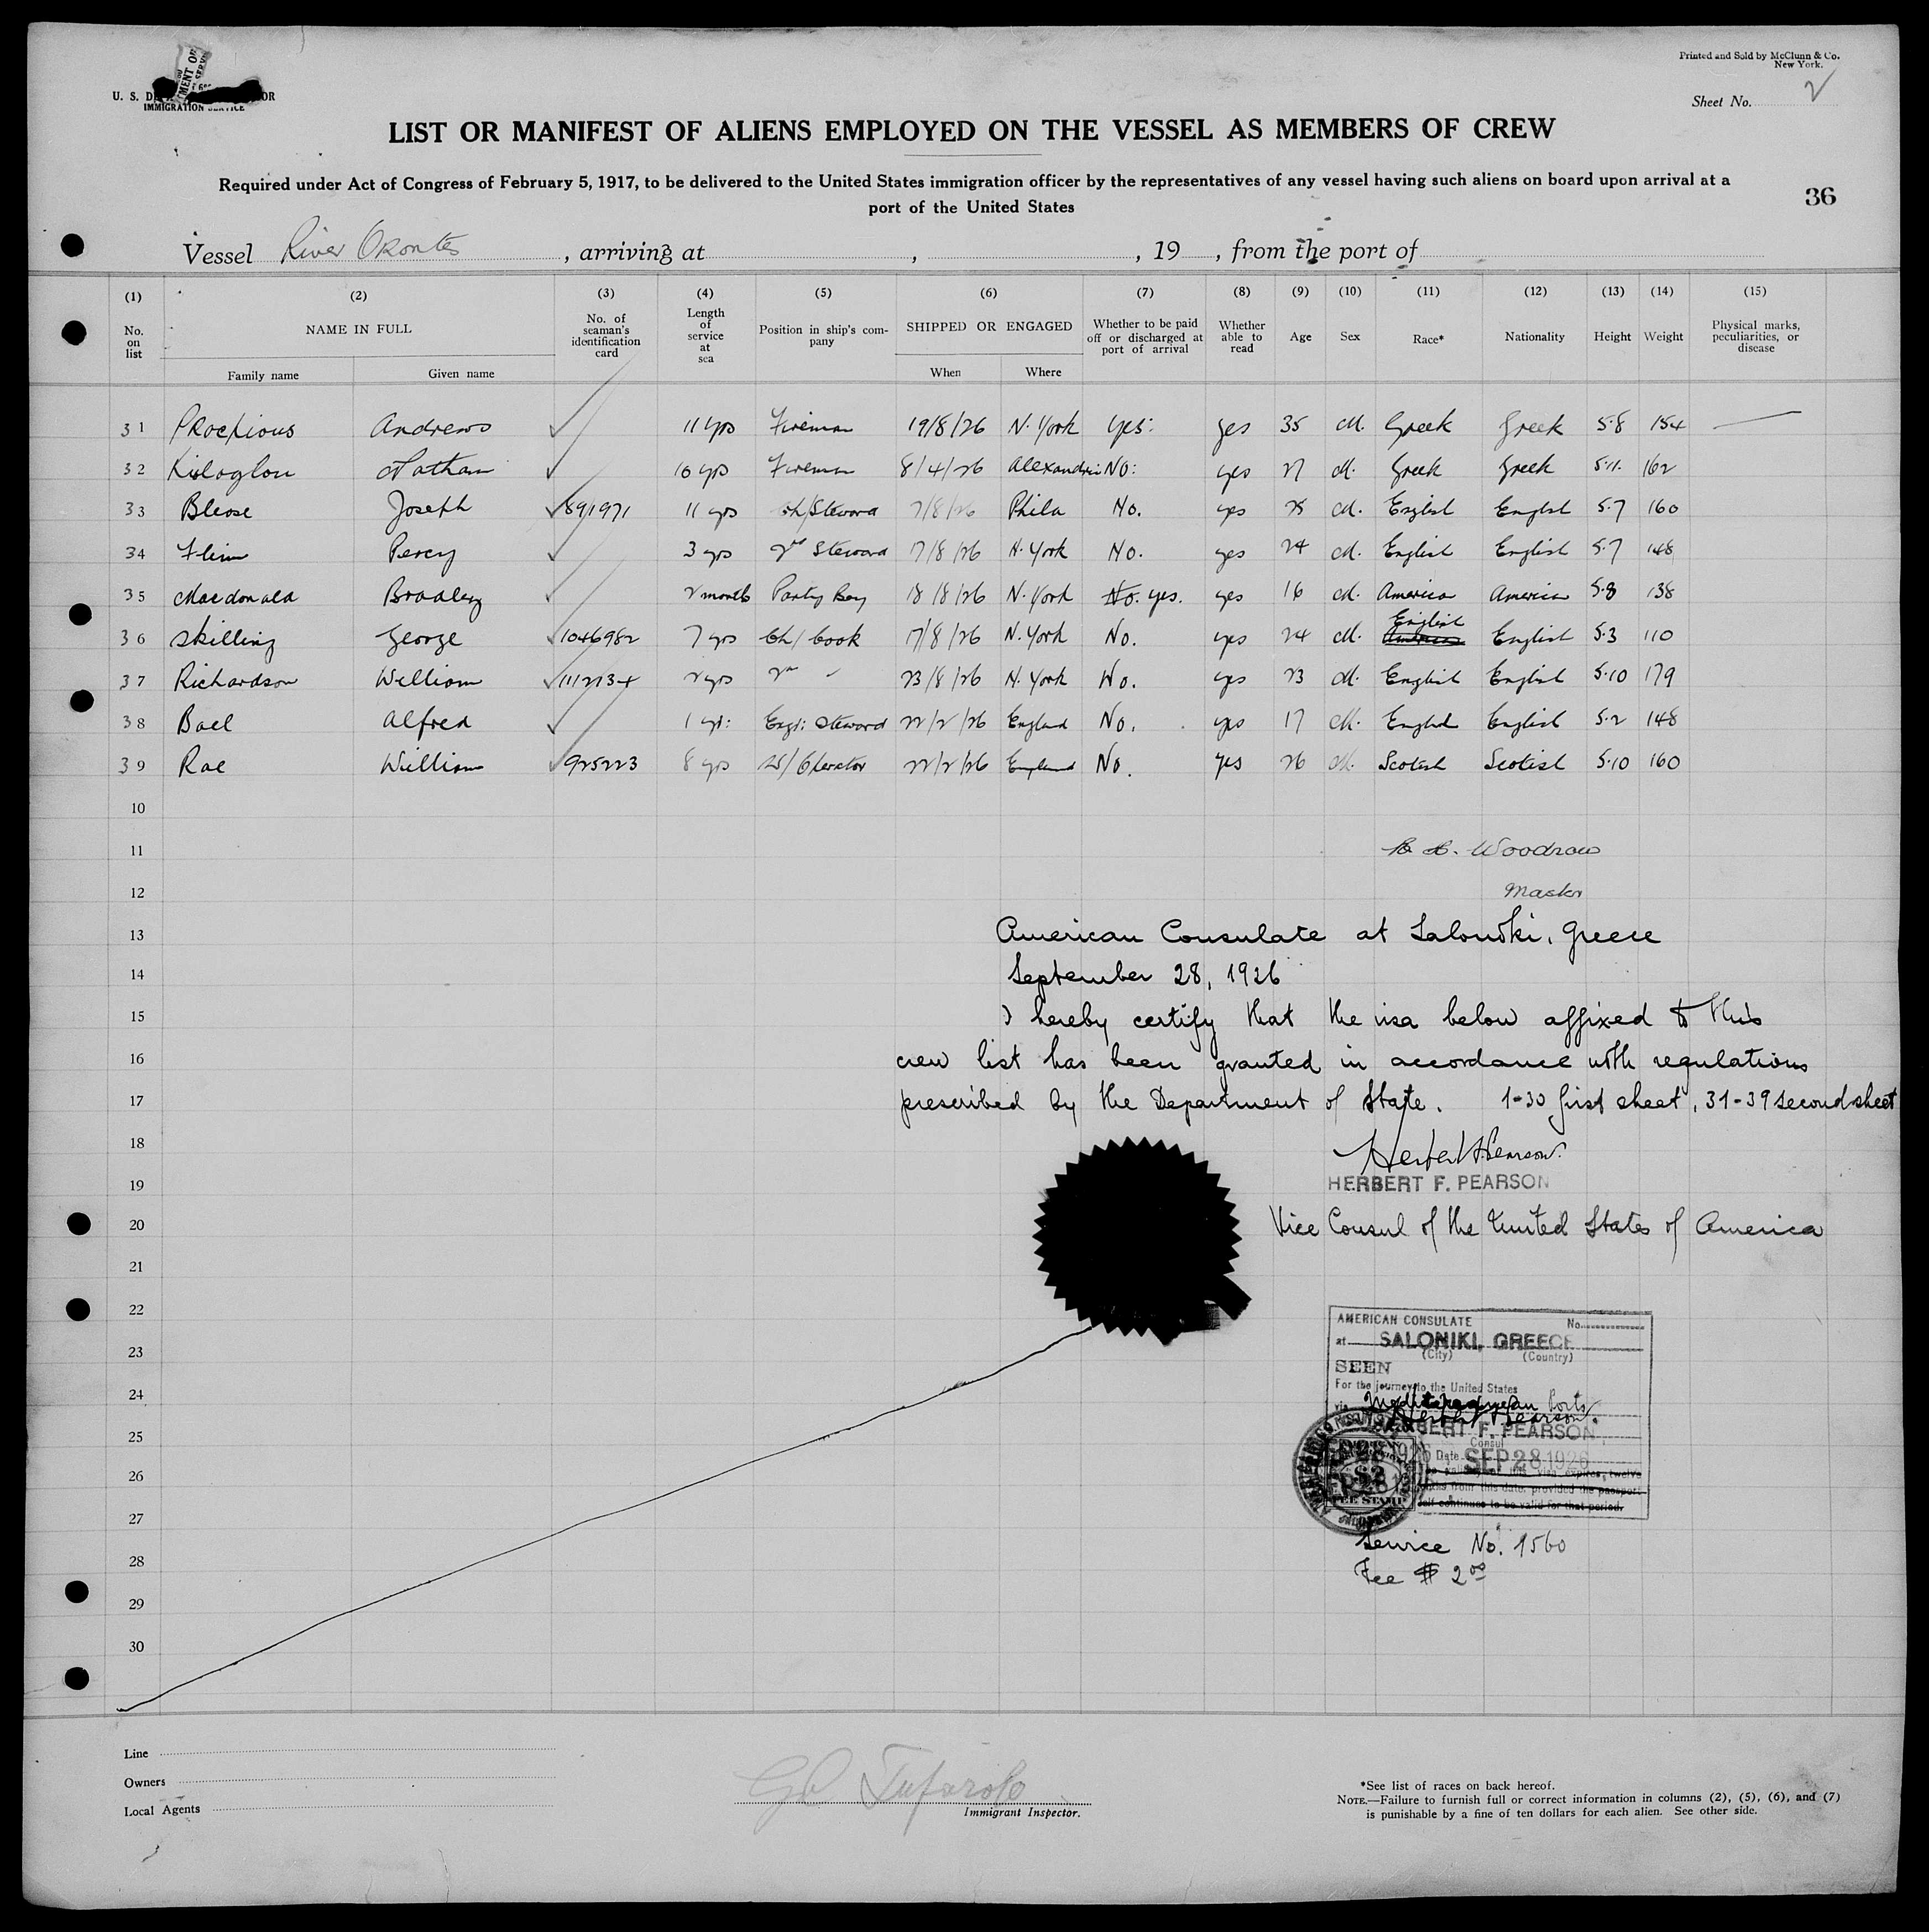 Printed and Sold by McClunn & Co.
New York.
Sheet No. 2
U. S. D OR
IMMIGRATION SERVICE
LIST OR MANIFEST OF ALIENS EMPLOYED ON THE VESSEL AS MEMBERS OF CREW
Required under Act of Congress of February 5, 1917, to be delivered to the United States immigration officer by the representatives of any vessel having such aliens on board upon arrival at a
port of the United States
36
Vessel River Orontes, arriving at , , 19 , from the port of
(1) (2) (3) (4) (5) (6) (7) (8) (9) (10) (11) (12) (13) (14) (15)
No. on list NAME IN FULL No. of seaman's identification card Length of service at sea Position in ship's company SHIPPED OR ENGAGED Whether to be paid off or discharged at port of arrival Whether able to read Age Sex Race* Nationality Height Weight Physical marks, peculiarities, or disease
Family name Given name When Where
31 Andrews 11 yrs Fireman 19/8/26 N. York Yes: yes 35 M. Greek Greek 5.8 154 —
32 Kiloglou Nathan 10 yrs Fireman 8/4/26 Alexandria No: yes 27 M. Greek Greek 5.11. 162
33 Blease Joseph 891971 11 yrs Ch/Steward 7/8/26 Phila No. yes 25 M. English English 5.7 160
34 Flinn Percy 3 yrs 2nd Steward 17/8/26 N. York No. yes 24 M. English English 5.7 148
35 Macdonald Bradley 2 months Pantry Boy 18/8/26 N. York No. yes. yes 16 M. America America 5.8 138
36 Skilling George 1046982 7 yrs Ch/Cook 17/8/26 N. York No. yes 24 M. English English 5.3 110
37 Richardson William 1112134 2 yrs 2nd " 23/8/26 N. York No. yes 23 M. English English 5.10 179
38 Bael Alfred 1 yr: Engr: Steward 22/2/26 England No. yes 17 M. English English 5.2 148
39 Rae William 925223 8 yrs W/Operator 22/2/26 England No. yes 26 M. Scotish Scotish 5.10 160
10
11 Woodrow
12 Master
13 American Consulate at Saloniki, Greece
14 September 28, 1926
15 I hereby certify that the visa below affixed to this
16 crew list has been granted in accordance with regulations
17 prescribed by the Department of State. 1-30 first sheet, 31-39 second sheet
18 Herbert F. Pearson.
19 HERBERT F. PEARSON
20 Vice Consul of the United States of America
21
22
AMERICAN CONSULATE No.
23 at SALONIKI, GREECE
(City) (Country)
SEEN
24 For the journey to the United States
via Mediterranean Ports
Herbert F. Pearson.
25 HERBERT F. PEARSON
Consul
Date SEP 28 1926
26 $2
FEE STAMP
27
Service No. 1560
28 Fee $ 2.00
29
30
Line
Owners
Local Agents
Immigrant Inspector.
*See list of races on back hereof.
NOTE.—Failure to furnish full or correct information in columns (2), (5), (6), and (7)
is punishable by a fine of ten dollars for each alien. See other side.